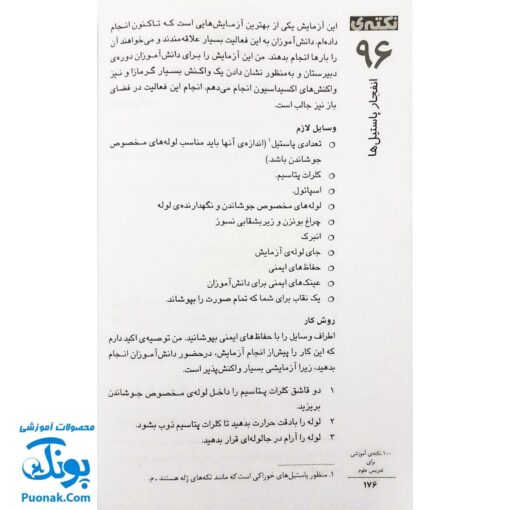 نکته‌ی
۹۶
انفجار پاستیل‌ها
این آزمایش یکی از بهترین آزمایش‌هایی است که تاکنون انجام
داده‌ام. دانش‌آموزان به این فعالیت بسیار علاقه‌مندند و می‌خواهند آن
را بارها انجام بدهند. من این آزمایش را برای دانش‌آموزان دوره‌ی
دبیرستان و به‌منظور نشان دادن یک واکنش بسیار گرمازا و نیز
واکنش‌های اکسیداسیون انجام می‌دهم. انجام این فعالیت در فضای
باز نیز جالب است.
وسایل لازم
تعدادی پاستیل۱ (اندازه‌ی آنها باید مناسب لوله‌های مخصوص
جوشاندن باشد.)
کلرات پتاسیم.
اسپاتول.
لوله‌های مخصوص جوشاندن و نگهدارنده‌ی لوله
چراغ بونزن و زیربشقابی نسوز
انبرک
جای لوله‌ی آزمایش
حفاظ‌های ایمنی
عینک‌های ایمنی برای دانش‌آموزان
یک نقاب برای شما که تمام صورت را بپوشاند.
روش کار
اطراف وسایل را با حفاظ‌های ایمنی بپوشانید. من توصیه‌ی اکید دارم
که این کار را پیش از انجام آزمایش، درحضور دانش‌آموزان انجام
بدهید، زیرا آزمایشی بسیار واکنش‌پذیر است.
۱ دو قاشق کلرات پتاسیم را داخل لوله‌ی مخصوص جوشاندن
بریزید.
۲ لوله را بادقت حرارت بدهید تا کلرات پتاسیم ذوب بشود.
۳ لوله را آرام در جالوله‌ای قرار بدهید.
۱. منظور پاستیل‌های خوراکی است که مانند تکه‌های ژله هستند ـ م.
۱۰۰ نکته‌ی آموزشی
برای
تدریس علوم
۱۷۶
محصولات آموزشی
پونک
Puonak.Com